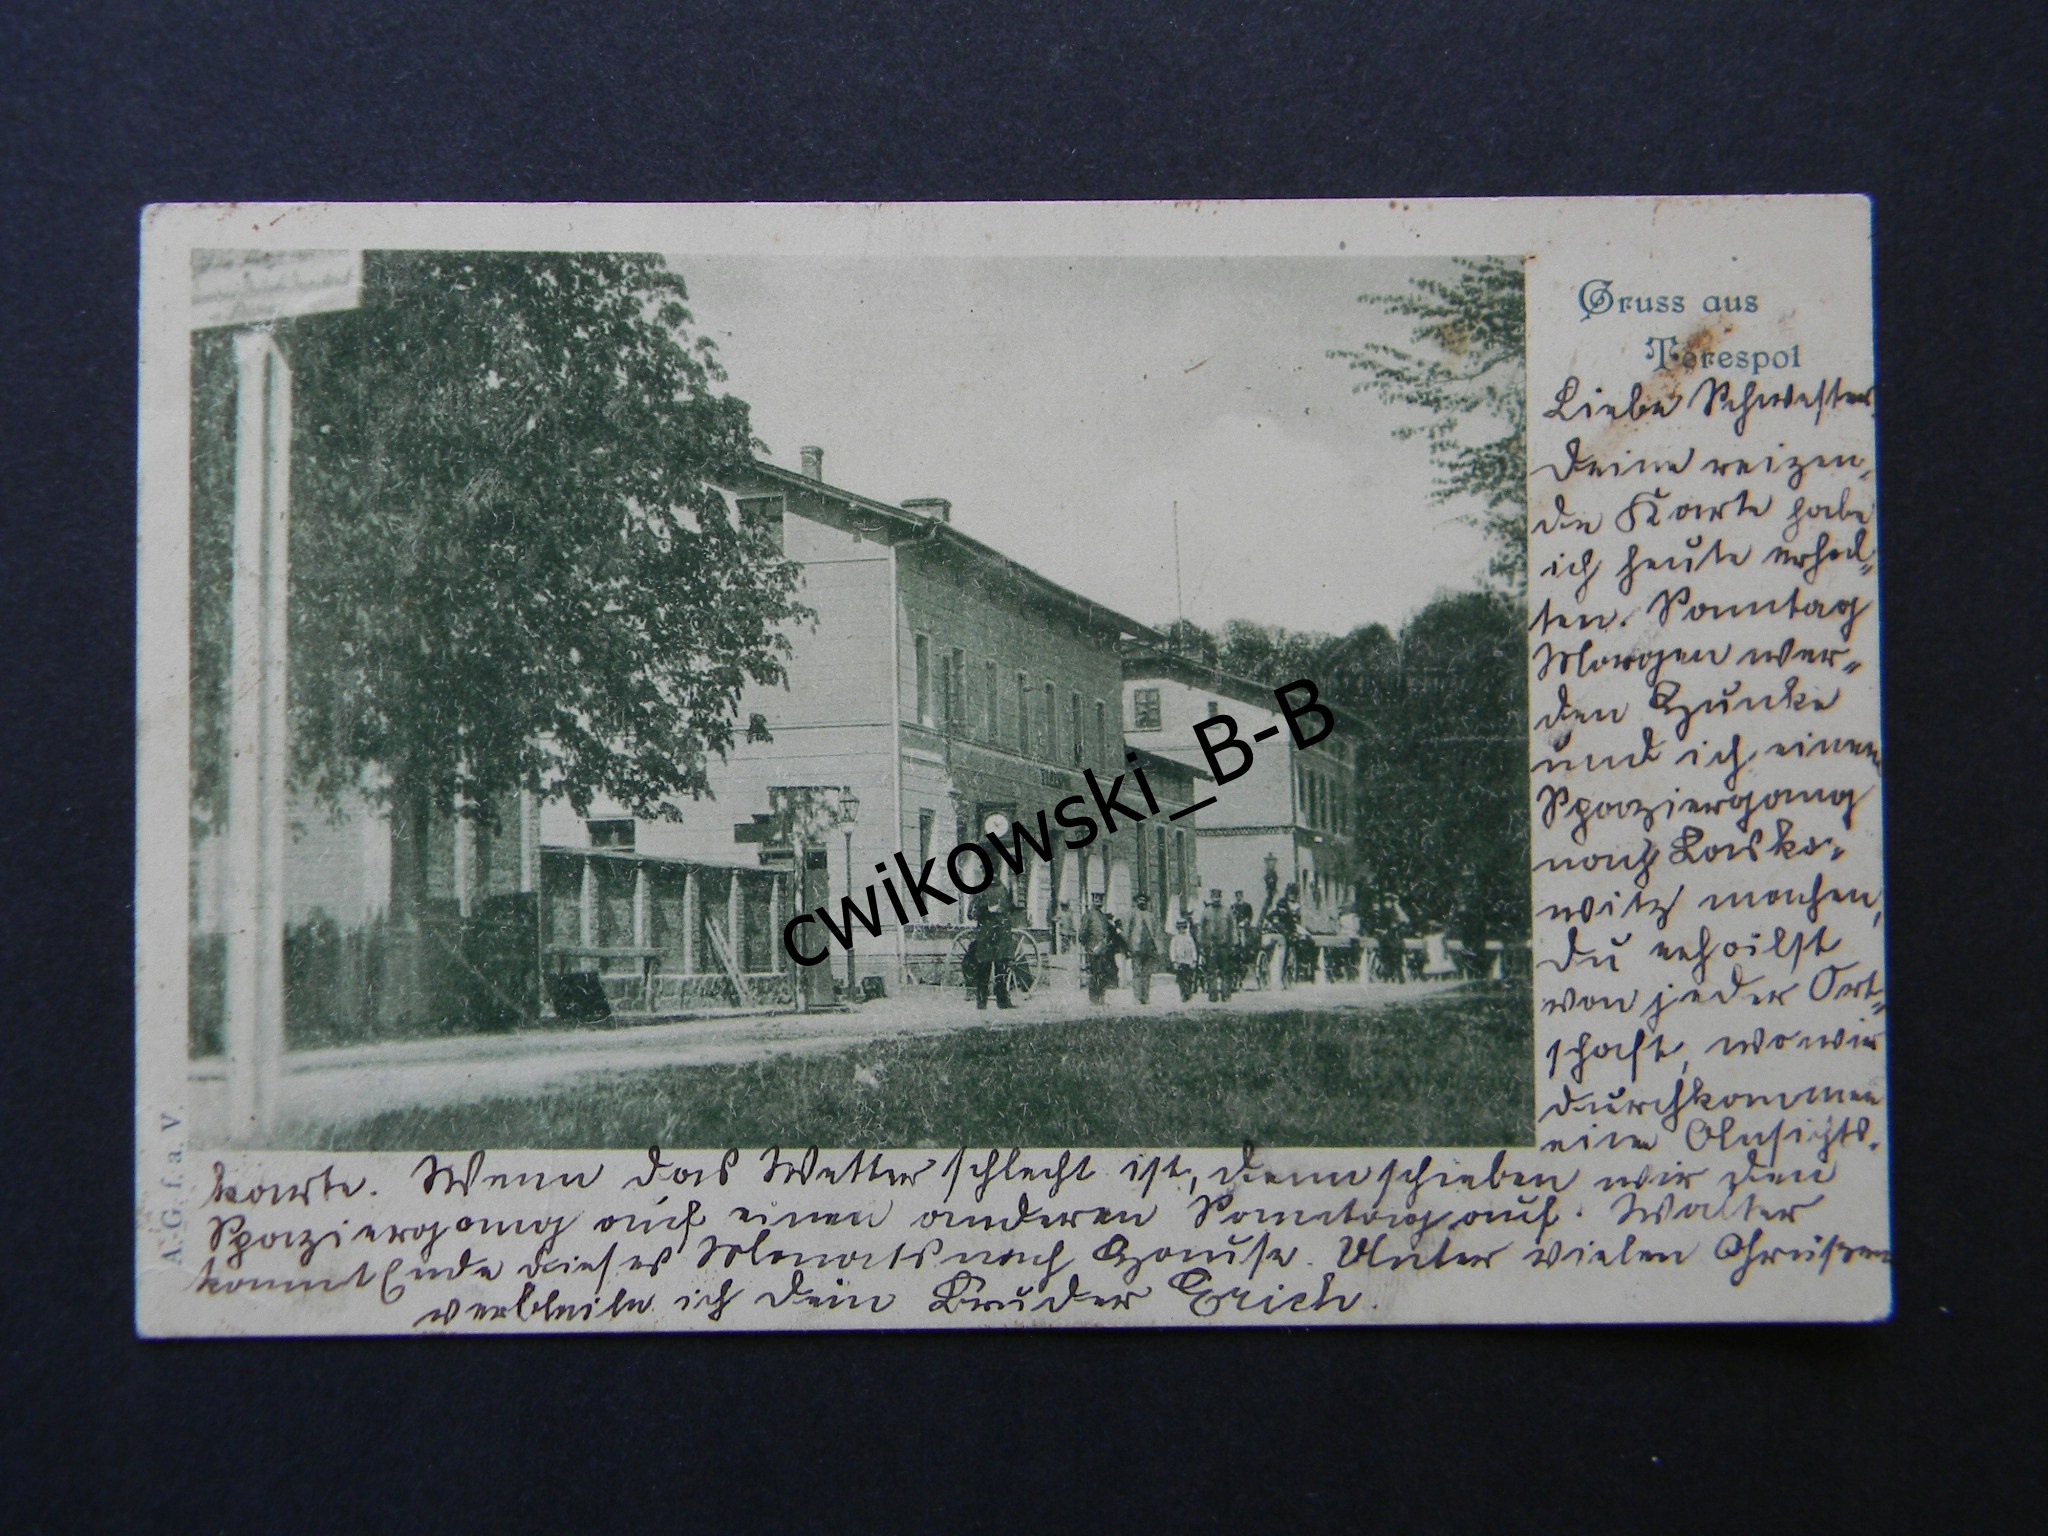 Gruss aus
Terespol
Liebe Schwester
Deine reizen„
de Karte habe
ich heute erhal„
ten. Sonntag
Morgen wer„
den Hunke
und ich einen
Spaziergang
nach Lasko„
witz machen,
du erhälst
von jeder Ort„
schaft, wo wir
durchkommen
eine Ansichts„
karte. Wenn das Wetter schlecht ist, dann schieben wir den
Spaziergang auf einen anderen Sonntag auf. Walter
kommt Ende dieses Monats nach Hause. Unter vielen Grüszen
verbleibe ich dein Bruder Erich.
A.-G. f. a. V.
cwikowski_B-B